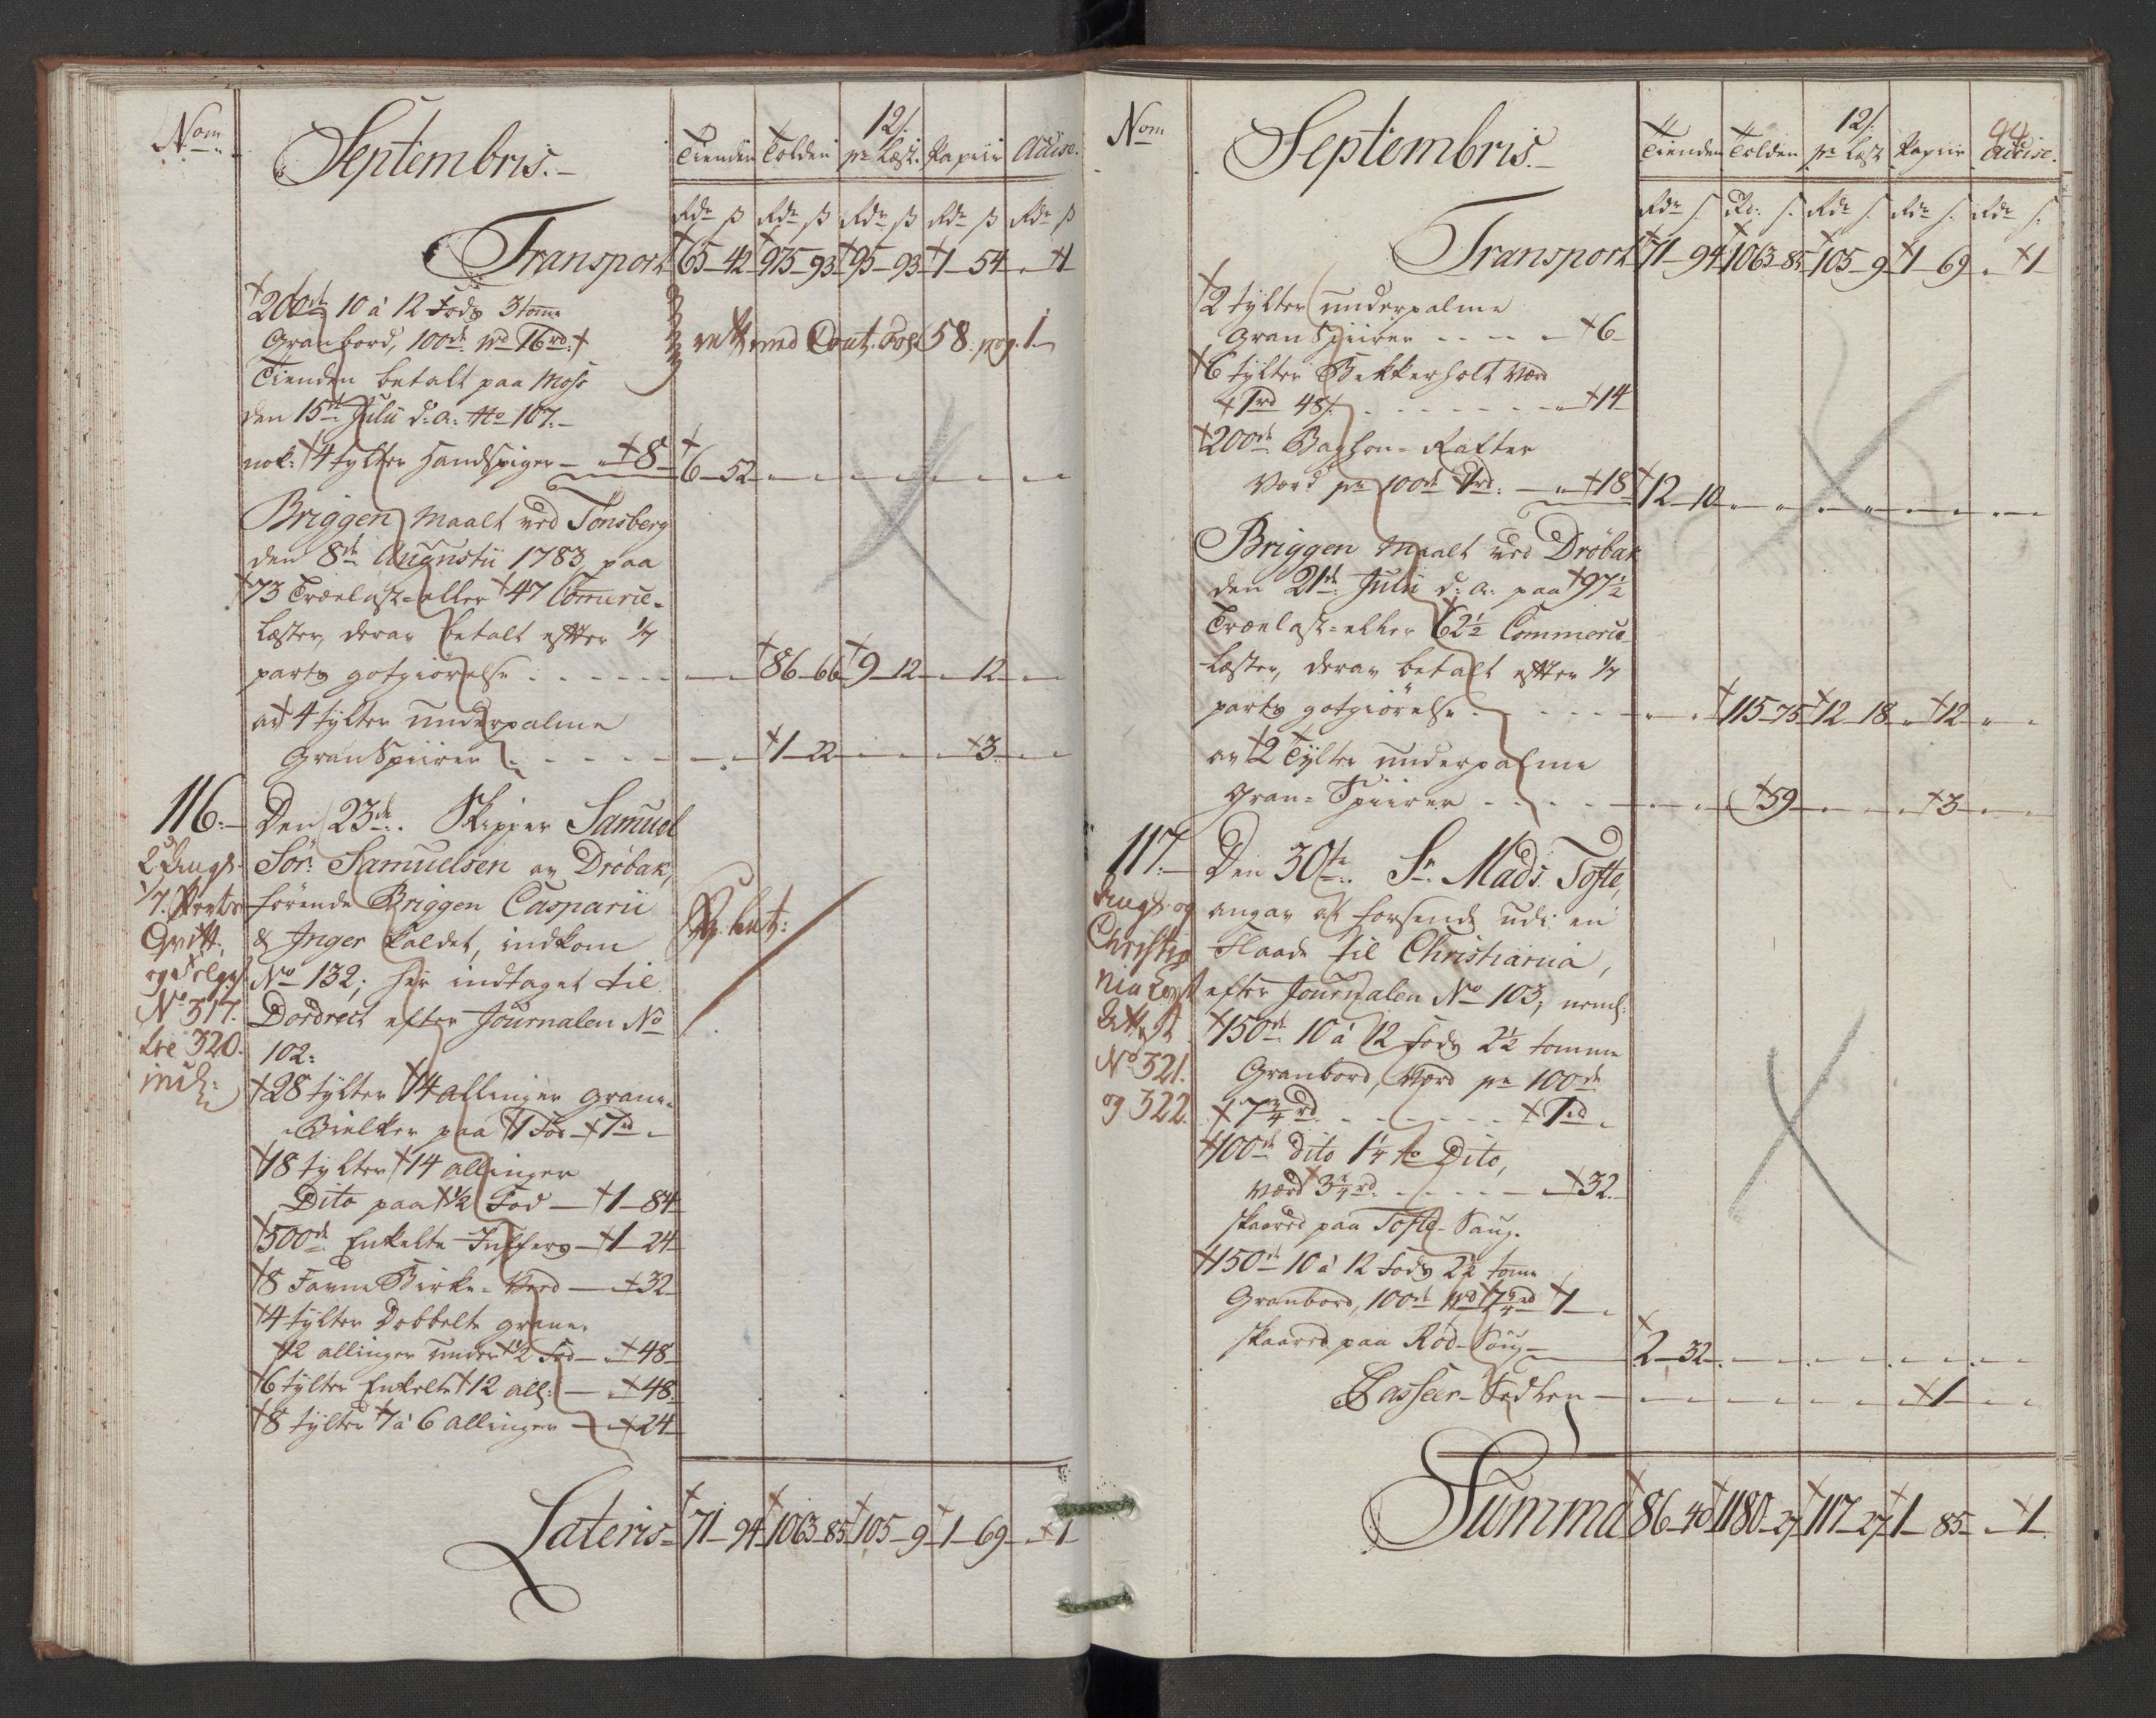 Nom
Septembris.
Tienden Tolden 12/. pr Læst. Papiir Accise.
Rdr ß Rdr ß Rdr ß Rdr ß Rdr ß
Transport 65-42 975-93 95-93 1-54 1
200de 10 à 12 Fods 3 tome
Granbord, 100de vrd 16rd:
Tienden betalt paa Moss
den 15de Julii d: a: No 107.
med Cont. 58. pag. 1
nok: 4 tylter Handspiger 8 6-52
Briggen maalt ved Tønsberg
den 8de Augustii 1783, paa
73 Trælast- eller 47 Comerce-
læster, derav betalt efter 1/7
parts godtgiørelse 86-66 9-12 12
av 4 tylter underpalme
Gran Spiirer 1-22 3
116. Den 23de. Skipper Samuel
Sør: Samuelsen av Drøbak,
førende Briggen Casparii
& Inger kaldet, indkom
No 132; her indtaget til
Dordrect efter Journalen No
102:
1/7. Parts
Qvitt:
No 317.
til 320.
incl:
28 tylter 14 allinger grane-
Bielker paa 1 Fod 1rd
18 tylter 14 allinger
Dito paa 1/2 Fod 1-84
500de Enkelte Juffers 1-24
8 Favne Birke-Ved 32
4 tylter Dobbelte grane-
12 allinger under 1/2 Fod 48
6 tylter Enkelte 12 all: 48
8 tylter 7 à 6 allinger 24
Lateris 71-94 1063-85 105-9 1-69 1
Nom
Septembris.
44
Tienden Tolden 12/. pr Læst Papiir Accise.
Rdr s. Rd: s. Rdr s. Rdr s. Rdr s.
Transport 71-94 1063-85 105-9 1-69 1
2 tylter underpalme
Gran Spiirer 6
6 tylter Bekkerholt værd
1rd 48/. 14
200de Baghon-Rafter
Værd pr 100de 18 12-10
Briggen maalt ved Drøbak
den 21de Julii d: a: paa 97½
Trælast- eller 62½ Commerce
læster, derav betalt efter 1/7
parts godtgiørelse 115-75 12-18 12
av 2 Tylter underpalme
Gran-Spiirer 59 3
117. Den 30te. Sr. Mads Tofte,
angav at forsende udi en
Flaade til Christiania,
efter Journalen No 103; neml:
og
Christia
nia
No 321.
og 322.
150de 10 à 12 Fods 2½ tomme
Granbord, værd pr 100de
7¾rd 1rd
100de dito 1¼ to Dito,
værd 3¾rd 32
skaaret paa Tofte-Saug.
150de 10 à 12 Fods 2½ tome
Granbord, 100de vrd 7¾rd 1
skaaret paa Rød-Saug 2-32
Passeer-Sedlen 1
Summa 86-40 1180-27 117-27 1-85 1